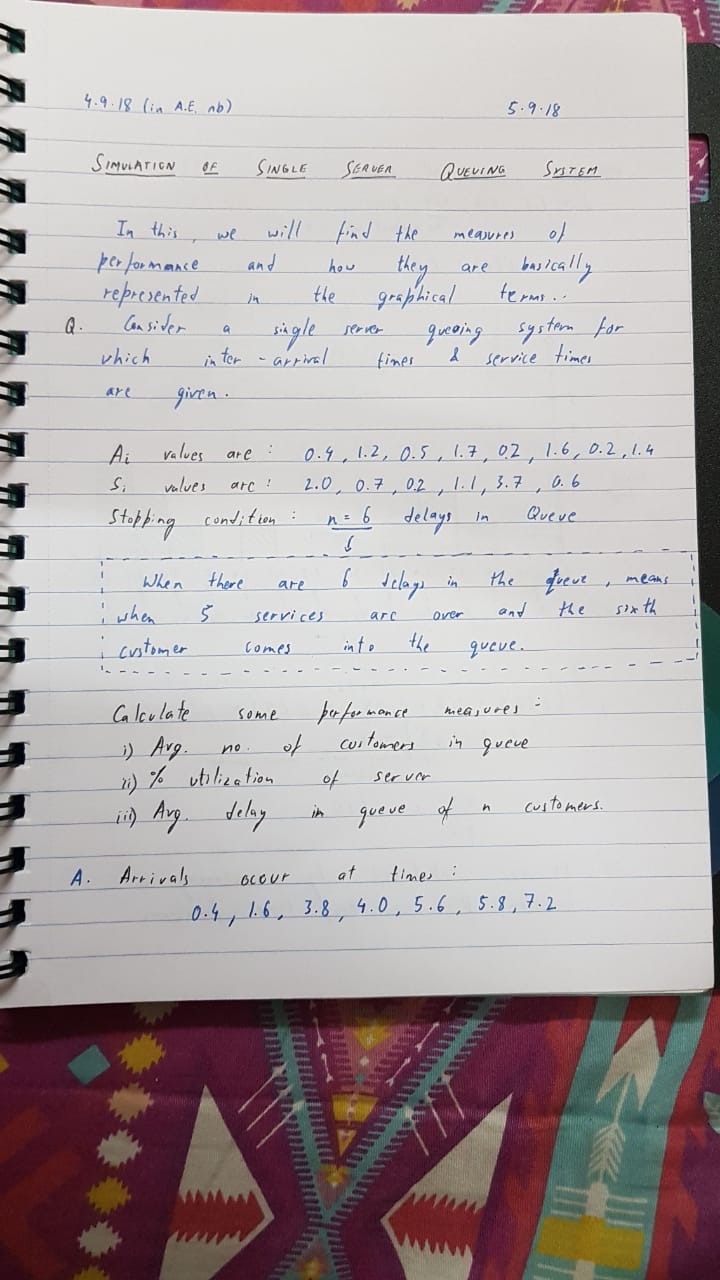 4.9.18 (in A.E. nb) 5.9.18
SIMULATION OF SINGLE SERVER QUEUING SYSTEM
In this, we will find the measures of
performance and how they are basically
represented in the graphical terms..
Q. Consider a single server queuing system for
which inter-arrival times & service times
are given.
Ai values are : 0.4, 1.2, 0.5, 1.7, 0.2, 1.6, 0.2, 1.4
Si values are : 2.0, 0.7, 0.2, 1.1, 3.7, 0.6
Stopping condition : n = 6 delays in Queue
↓
When there are 6 delays in the queue, means
when 5 services are over and the sixth
customer comes into the queue.
Calculate some performance measures :
i) Avg. no. of customers in queue
ii) % utilization of server
iii) Avg. delay in queue of n customers.
A. Arrivals occur at times :
0.4, 1.6, 3.8, 4.0, 5.6, 5.8, 7.2